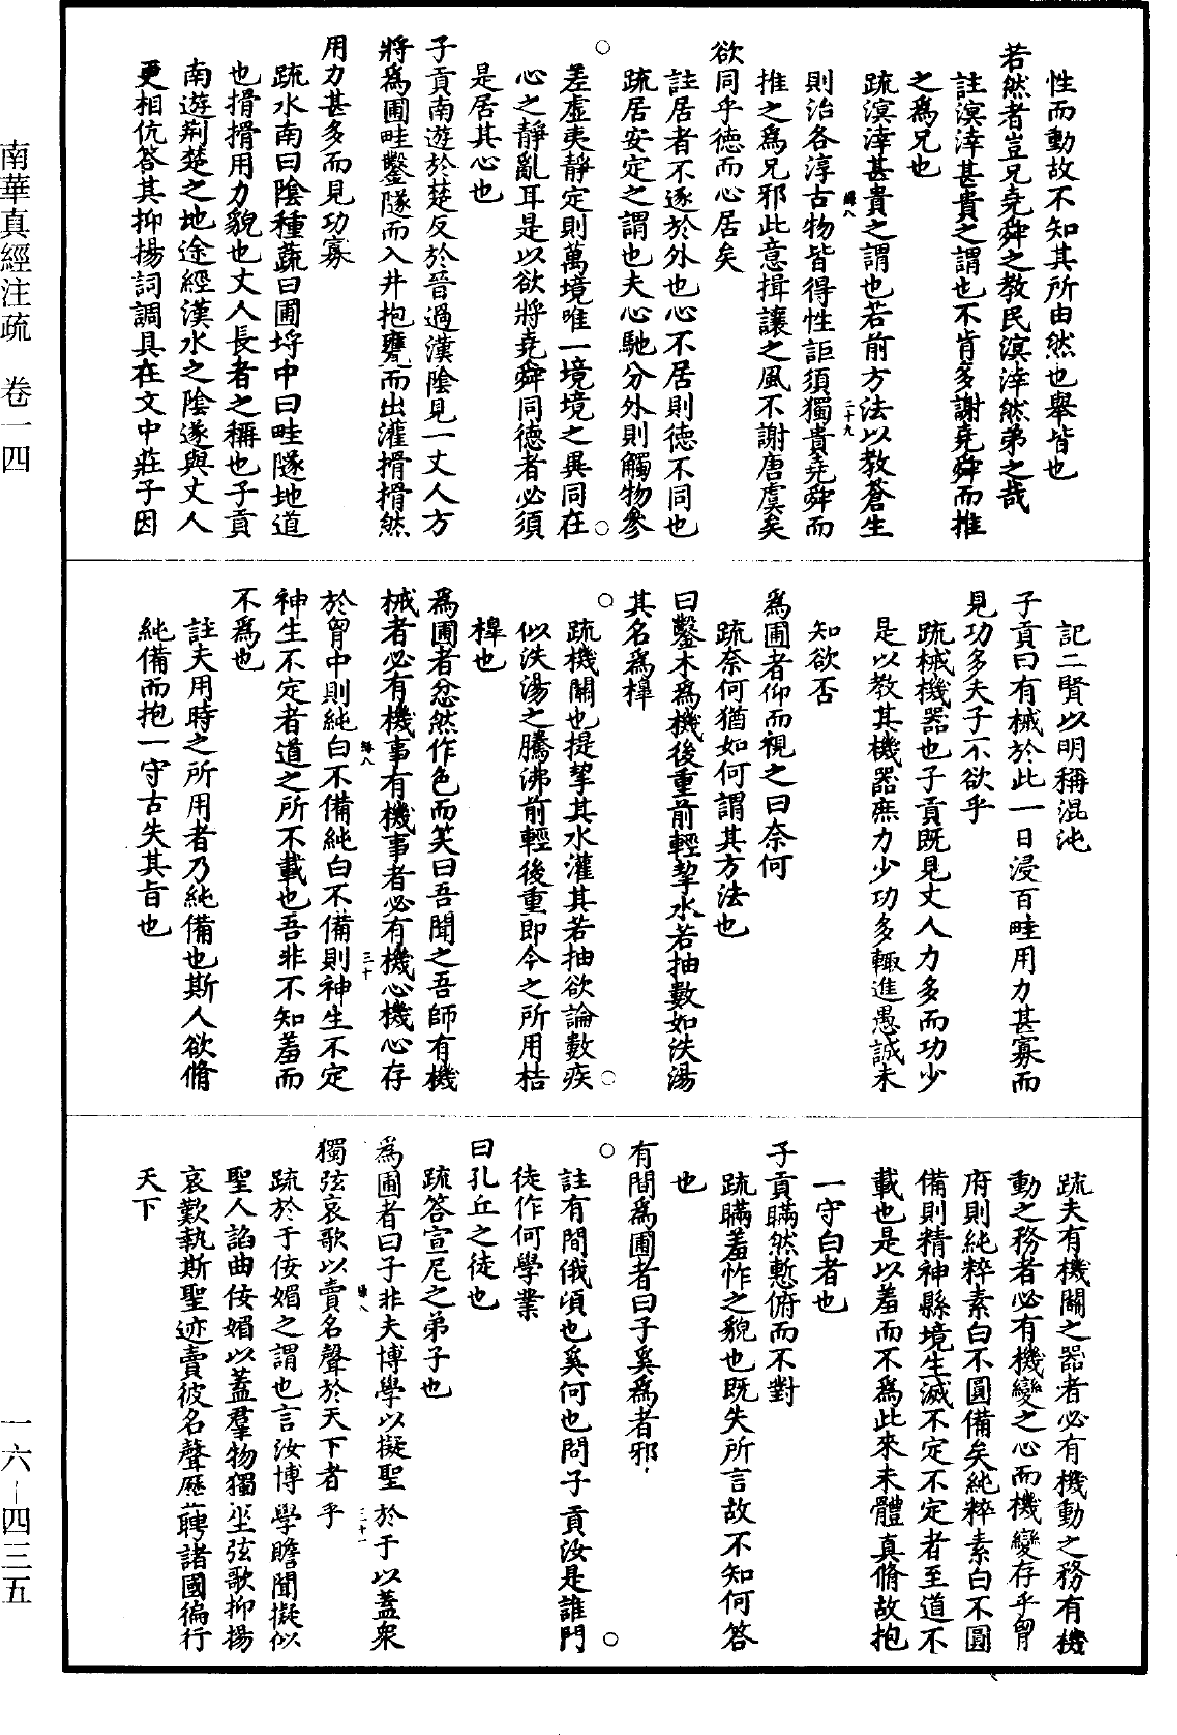 性而動故不知其所由然也舉皆也
若然者豈兄堯舜之教民溟涬然弟之哉
註溟涬甚貴之謂也不肯多謝堯舜而推
之為兄也
疏溟涬甚貴之謂也若前方法以教蒼生
則治各淳古物皆得性詎須獨貴堯舜而
推之為兄邪此意揖讓之風不謝唐虞矣
欲同乎德而心居矣
註居者不逐於外也心不居則德不同也
疏居安定之謂也夫心馳分外則觸物參
差虛夷靜定則萬境唯一境境之異同在
心之靜亂耳是以欲將堯舜同德者必須
是居其心也
子貢南遊於楚反於晉過漢陰見一丈人方
將為圃畦鑿隧而入井抱甕而出灌搰搰然
用力甚多而見功寡
疏水南曰陰種蔬曰圃埒中曰畦隧地道
也搰搰用力貌也丈人長者之稱也子貢
南遊荊楚之地途經漢水之陰遂與丈人
更相伉答其抑揚詞調具在文中莊子因
記二賢以明稱混沌
子貢曰有械於此一日浸百畦用力甚寡而
見功多夫子不欲乎
疏械機器也子貢既見丈人力多而功少
是以教其機器庶力少功多輙進愚誠未
知欲否
為圃者仰而視之曰奈何
疏奈何猶如何謂其方法也
曰鑿木為機後重前輕挈水若抽數如泆湯
其名為槔
疏機關也提挈其水灌其若抽欲論數疾
似泆湯之騰沸前輕後重即今之所用桔
槔也
為圃者忿然作色而笑曰吾聞之吾師有機
械者必有機事有機事者必有機心機心存
於胷中則純白不備純白不備則神生不定
神生不定者道之所不載也吾非不知羞而
不為也
註夫用時之所用者乃純備也斯人欲脩
純備而抱一守古失其旨也
疏夫有機關之器者必有機動之務有機
動之務者必有機變之心而機變存乎胷
府則純粹素白不圓備矣純粹素白不圓
備則精神縣境生滅不定不定者至道不
載也是以羞而不為此來未體真脩故抱
一守白者也
子貢瞞然慙俯而不對
疏瞞羞怍之貌也既失所言故不知何答
也
有間為圃者曰子奚為者邪
註有間俄頃也奚何也問子貢汝是誰門
徒作何學業
曰孔丘之徒也
疏答宣尼之弟子也
為圃者曰子非夫博學以擬聖於于以蓋衆
獨弦哀歌以賣名聲於天下者乎
疏於于佞媚之謂也言汝博學贍聞擬似
聖人諂曲佞媚以蓋羣物獨坐弦歌抑揚
哀歎執斯聖迹賣彼名聲歷聘諸國徧行
天下
南華真經注疏 卷一四
一六—四三五